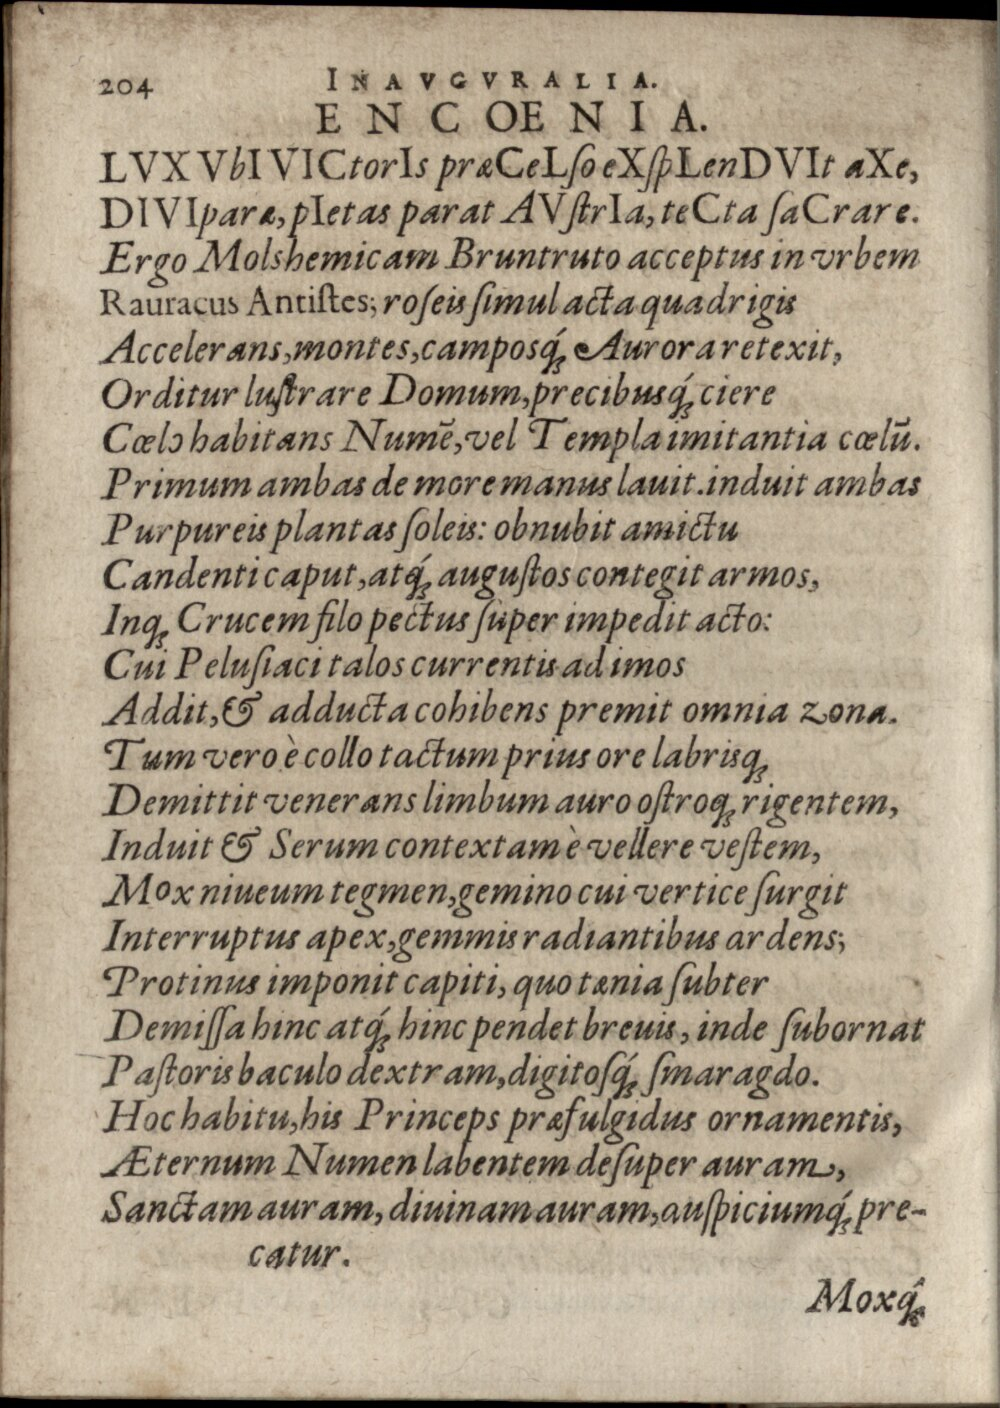 204 INAVGVRALIA.
ENCOENIA.
LVX VbI VICtorIs præCeLſo eXſpLenDVIt aXe,
DIVIparæ, pIetas parat AVſtrIa, teCta ſaCrare.
Ergo Molshemicam Bruntruto acceptus in vrbem
Rauracus Antiſtes; roſeis ſimul acta quadrigis
Accelerans, montes, camposq́ꝫ Aurora retexit,
Orditur luſtrare Domum, precibusq́ꝫ ciere
Cœlo habitans Numē, vel Templa imitantia cœlū.
Primum ambas de more manus lauit. induit ambas
Purpureis plantas ſoleis: obnubit amictu
Candenti caput, atq́ꝫ auguſtos contegit armos,
Inqꝫ Crucem filo pectus ſùper impedit acto:
Cui Peluſiaci talos currentis ad imos
Addit, & adducta cohibens premit omnia zona.
Tum vero è collo tactum prius ore labrisqꝫ
Demittit venerans limbum auro oſtroqꝫ rigentem,
Induit & Serum contextam è vellere veſtem,
Mox niueum tegmen, gemino cui vertice ſurgit
Interruptus apex, gemmis radiantibus ardens;
Protinus imponit capiti, quo tænia ſubter
Demiſſa hinc atq́ꝫ hinc pendet breuis, inde ſubornat
Paſtoris baculo dextram, digitoſq́ꝫ ſmaragdo.
Hoc habitu, his Princeps præfulgidus ornamentis,
Æternum Numen labentem deſuper auram,
Sanctam auram, diuinam auram, auſpiciumq́ꝫ pre-
catur.
Moxq̂ꝫ